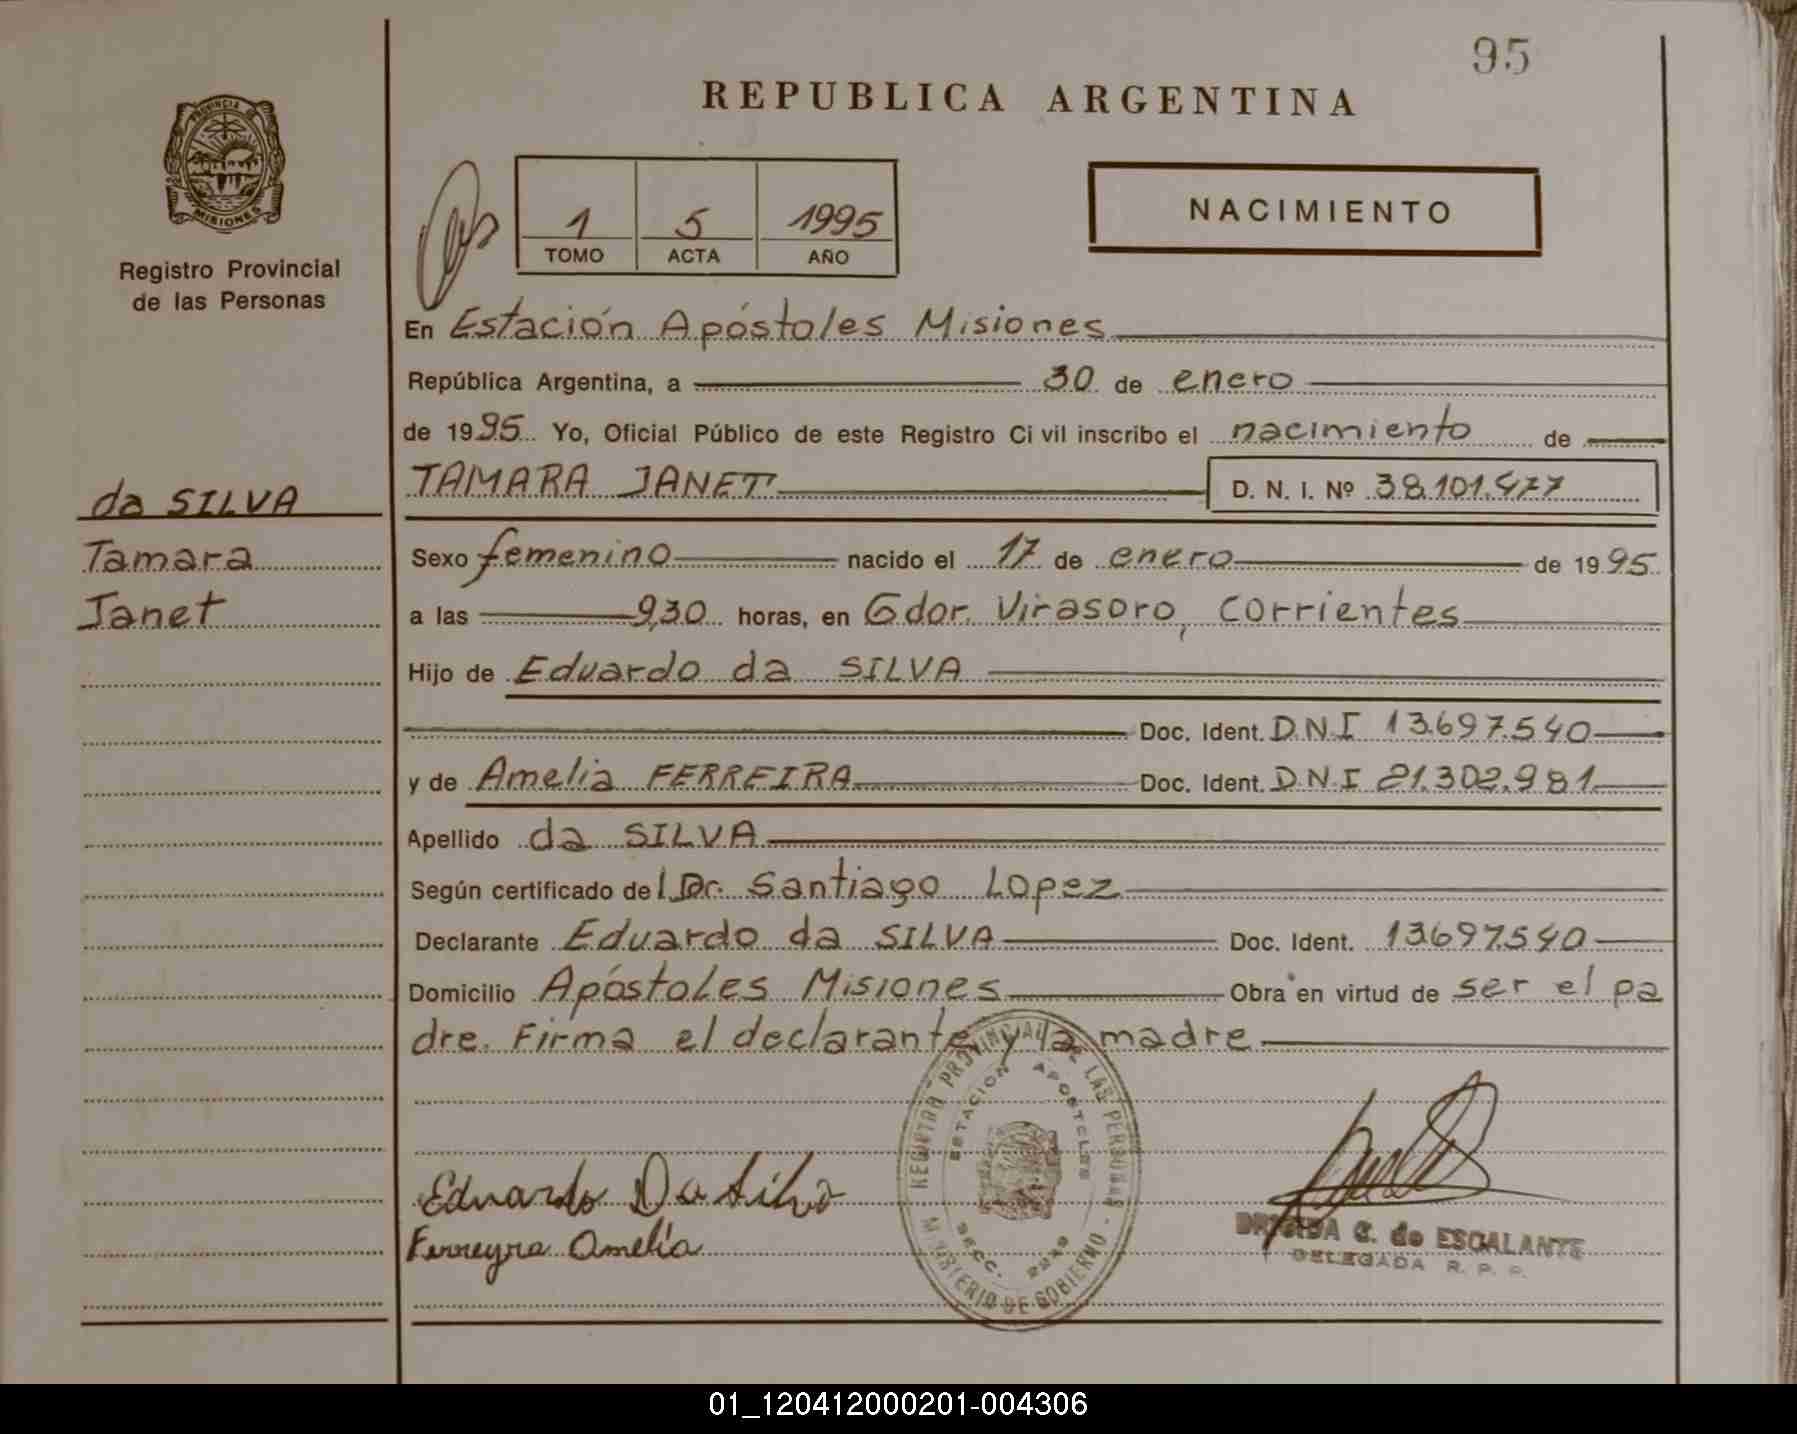 95
REPUBLICA ARGENTINA
PROVINCIA DE
MISIONES
Registro Provincial
de las Personas
1 5 1995
TOMO ACTA AÑO
NACIMIENTO
En Estación Apóstoles Misiones
República Argentina, a 30 de enero
de 1995. Yo, Oficial Público de este Registro Civil inscribo el nacimiento de
da SILVA
Tamara
Janet
TAMARA JANET D. N. I. Nº 38.101.477
Sexo femenino nacido el 17 de enero de 1995
a las 9,30 horas, en Gdor. Virasoro, Corrientes
Hijo de Eduardo da SILVA
Doc. Ident. D.N.I 13.697.540
y de Amelia FERREIRA Doc. Ident. D.N.I 21.302.981
Apellido da SILVA
Según certificado del Dr. Santiago Lopez
Declarante Eduardo da SILVA Doc. Ident. 13.697.540
Domicilio Apóstoles Misiones Obra en virtud de ser el pa
dre. Firma el declarante y la madre
REGISTRO PROVINCIAL DE LAS PERSONAS
ESTACION APOSTOLES
SECC. 2249
MINISTERIO DE GOBIERNO
Eduardo Da Silva
Ferreyra Amelia
BRIGIDA G. de ESCALANTE
DELEGADA R. P. P.
01_120412000201-004306